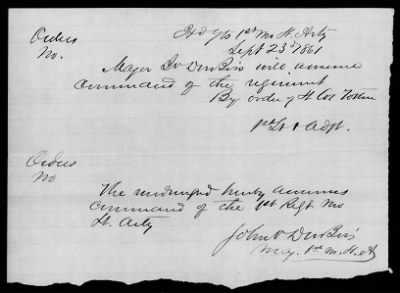 Orders
No.
Hd Qrs 1st Mo. Lt. Arty
Sept 23d 1861
Major Jno V DuBois will assume
command of the regiment
By order of Lt Col Totten
1st Lt & Adjt.
Orders
No
The undersigned hereby assumes
command of the 1st Regt Mo
Lt. Arty
John V DuBois
Maj. 1st M. Lt. Ay